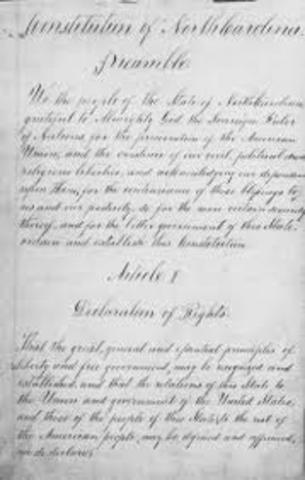 Constitution of North Carolina.
Preamble.
We the people of the State of North Carolina
grateful to Almighty God the Sovereign Ruler
of Nations, for the preservation of the American
Union, and the existence of our civil, political and
religious liberties, and acknowledging our dependence
upon Him, for the continuance of those blessings to
us and our posterity, do for the more certain security
thereof, and for the better government of this State
ordain and establish this Constitution
Article I
Declaration of Rights.
That the great, general and essential principles of
liberty and free government, may be recognized and
established, and that the relations of this State to
the Union and government of the United States,
and those of the people of this State, to the rest of
the American people, may be defined and affirmed,
we do declare: